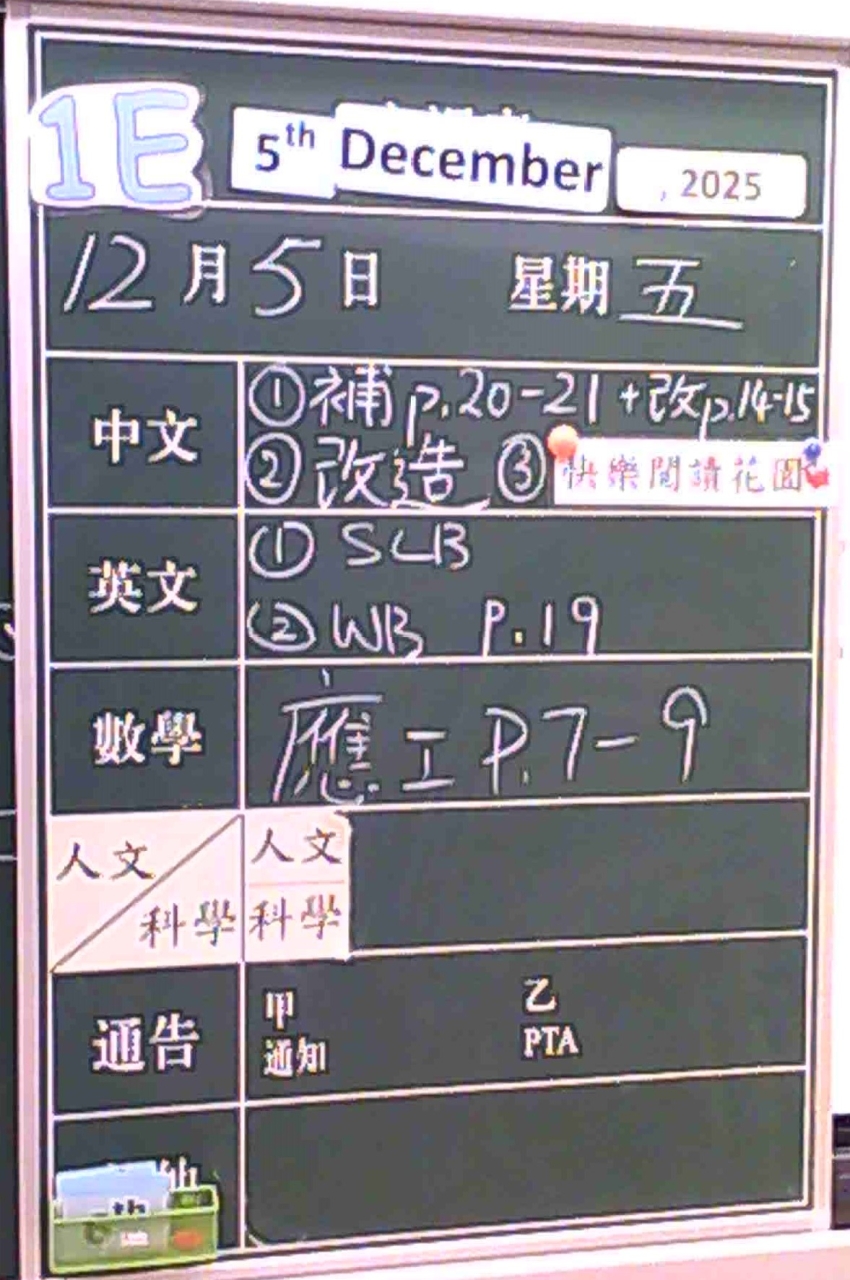 1E
5th December , 2025
12月5日 星期五
中文
①補p.20-21+改p.14-15
②改造 ③快樂閱讀花園
英文
① SCB
② WB P.19
數學
應工 P.7-9
人文
科學
人文
科學
通告
甲
通知
乙
PTA